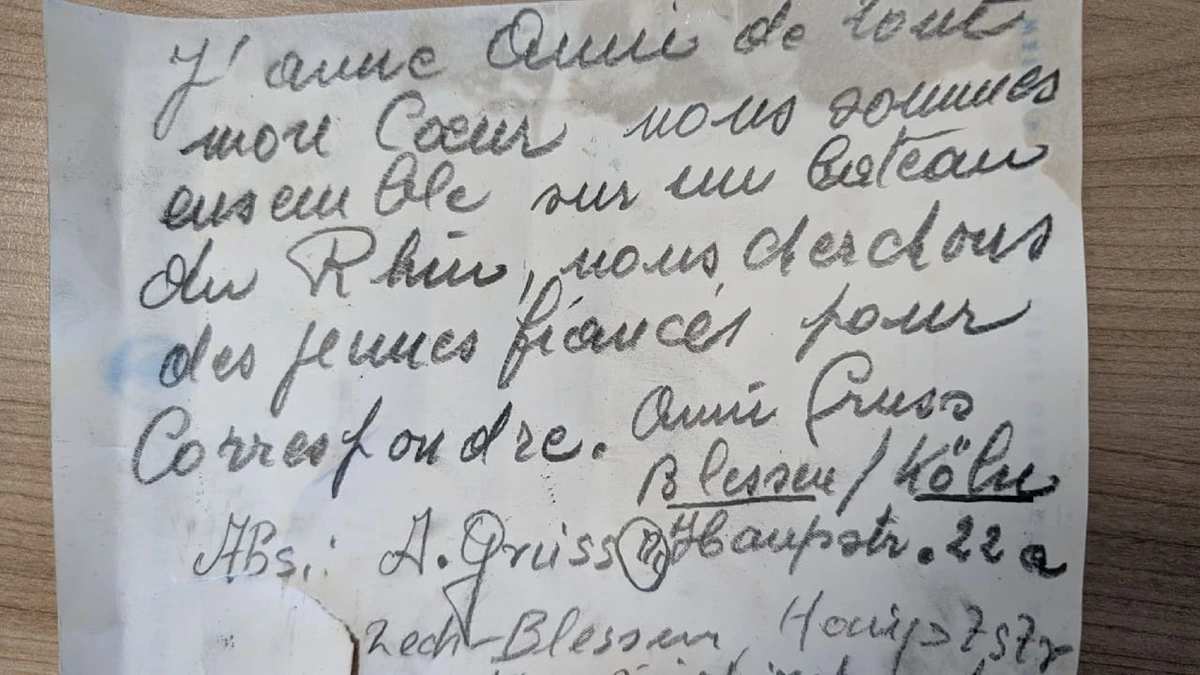 J'aime Anni de tout
mon Coeur nous sommes
ensemble sur un bateau
du Rhin, nous cherchons
des jeunes fiancés pour
Correspondre. Anni Gruss
Blessem / Köln
Abs.: A. Gruss Haupstr. 22a
Blessem